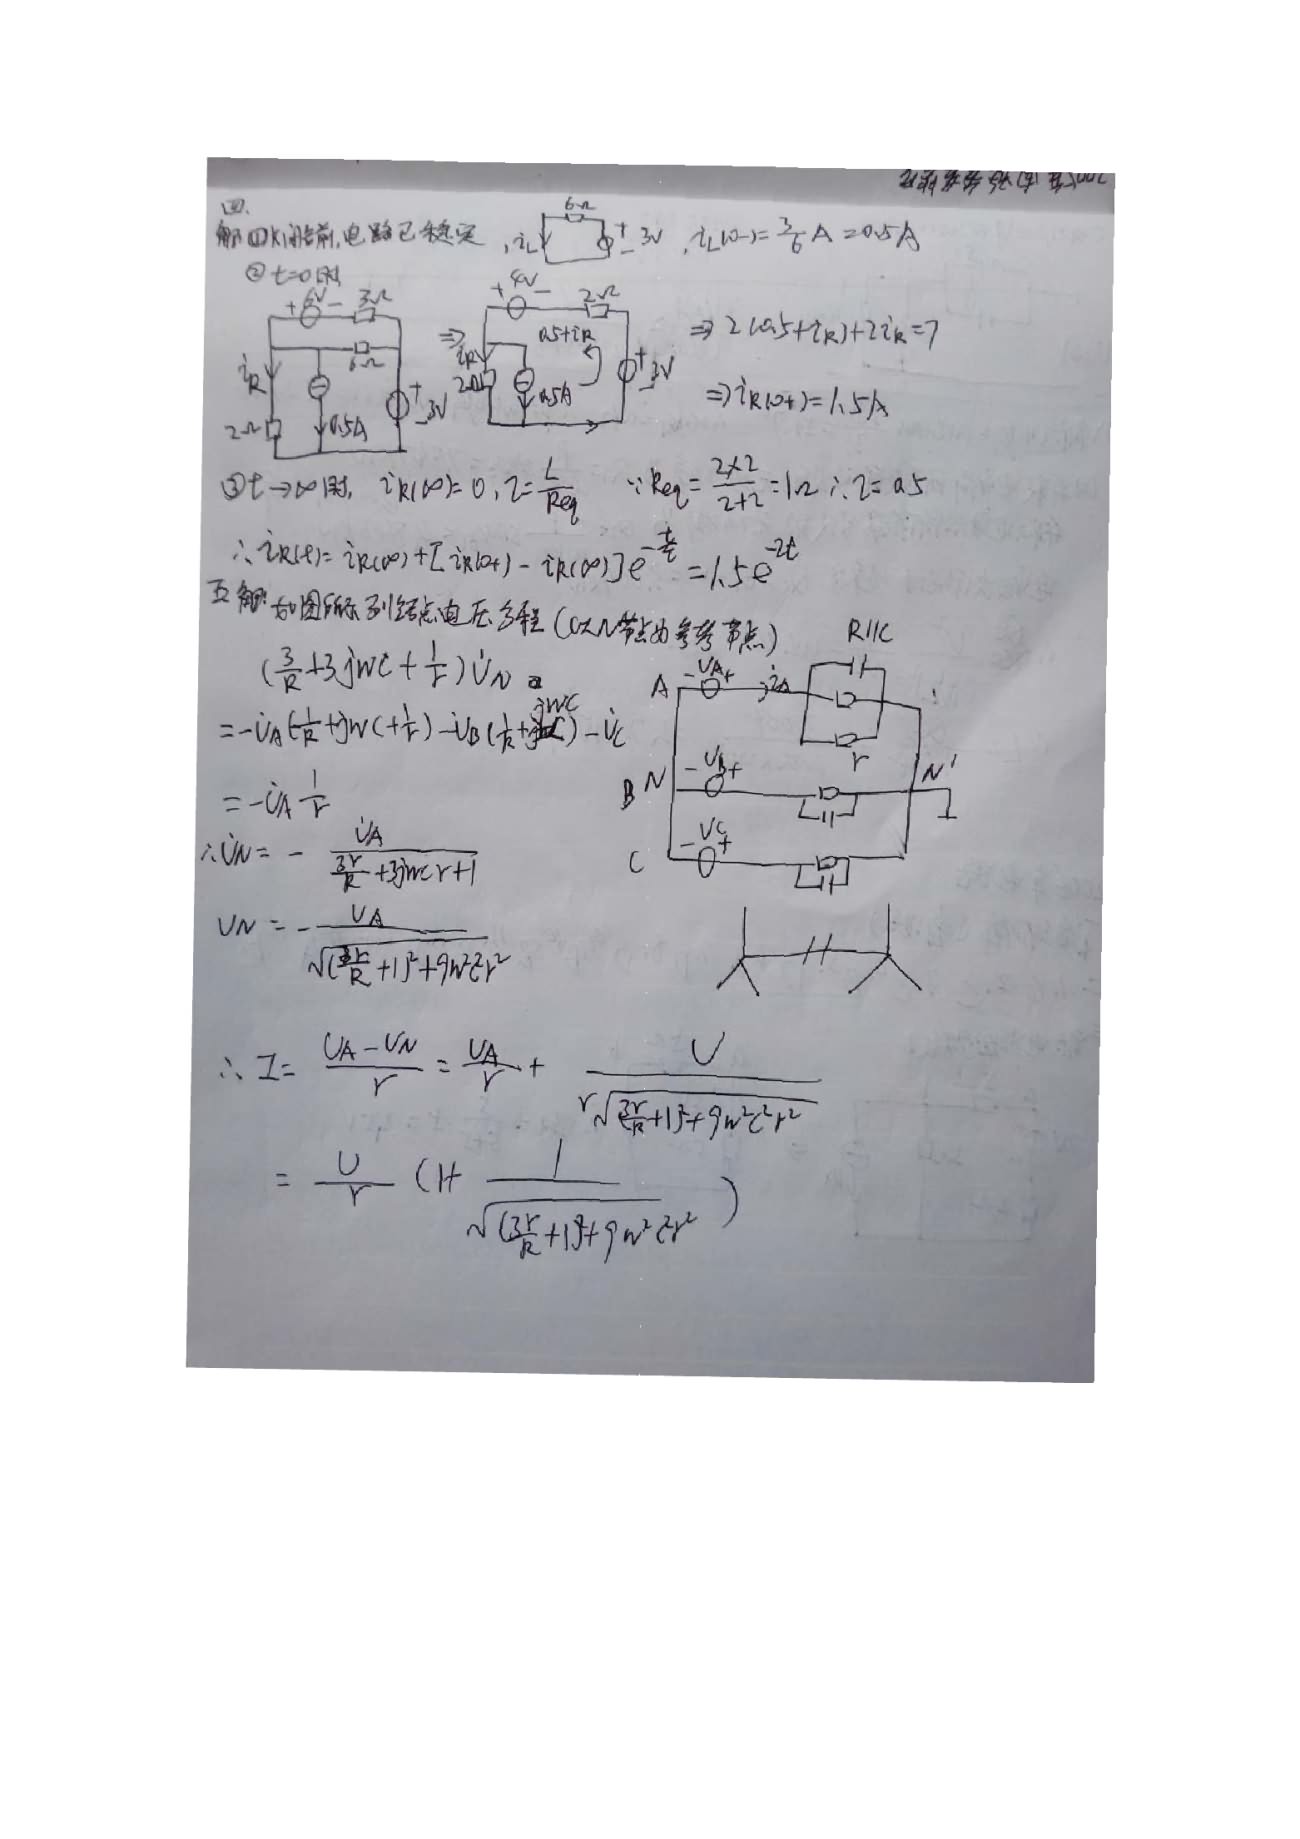 四.
解①K闭合前,电路已稳定, iL 6Ω + - 3V , iL(0-)=3/6 A=0.5A
②t=0时
+ 6V - 3Ω 6Ω iR 2Ω 0.5A + - 3V
⇒ + 4V - 2Ω 0.5+iR iR 2Ω 0.5A + - 3V
⇒ 2(0.5+iR)+2iR=7
⇒iR(0+)=1.5A
③t→∞时, iR(∞)=0, τ=L/Req ∵Req=2×2/2+2=1Ω ∴τ=0.5
∴iR(t)=iR(∞)+[iR(0+)-iR(∞)]e^-t/τ=1.5e^-2t
五解: 如图所示列结点电压方程(以N'节点为参考节点)
(3/R+3jwc+1/r)U̇N
=-U̇A(1/R+jwc+1/r)-U̇B(1/R+jwc)-U̇C
=-U̇A 1/r
∴U̇N=- U̇A/(3r/R+3jwcr+1)
UN=- UA/√(3r/R+1)²+9w²c²r²
R//C
A -UA+ iA r
B N -UB+ N'
C -UC+
∴I= UA-UN/r = UA/r + U/r√(3r/R+1)²+9w²c²r²
= U/r (1+ 1/√(3r/R+1)²+9w²c²r²)